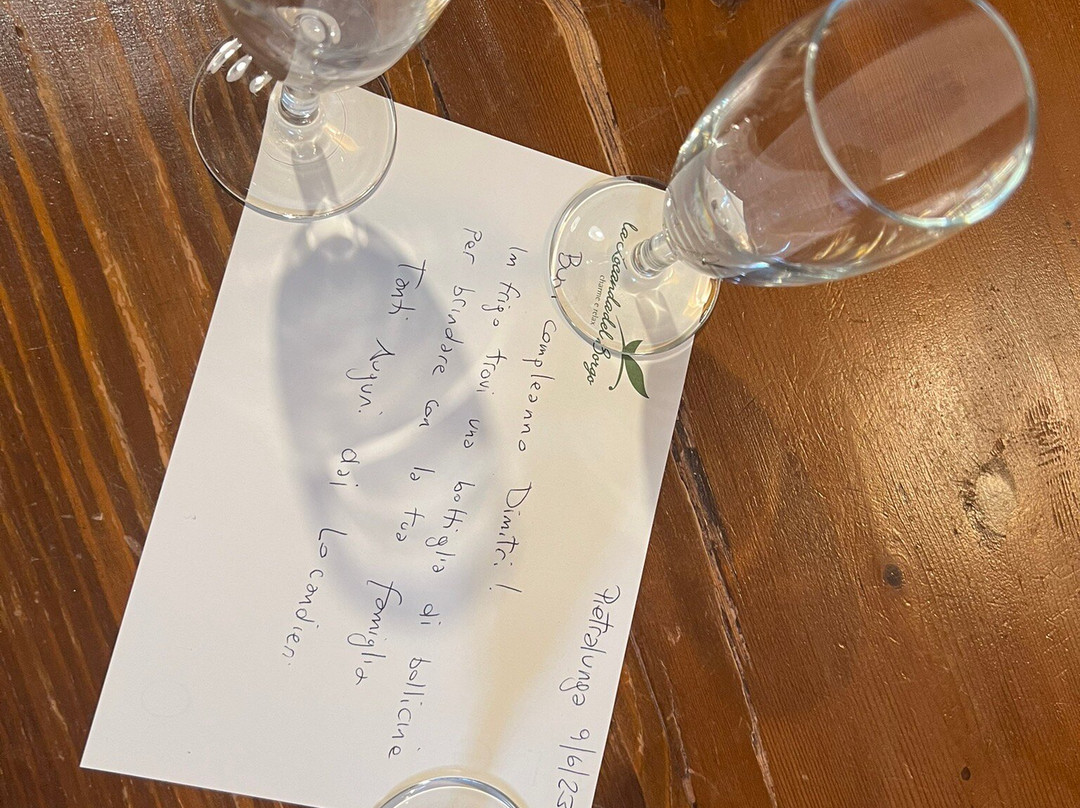 la Locanda del Borgo
charme e relax
Pietralunga 9/6/23
Buon compleanno Dimitri!
In frigo trovi una bottiglia di bollicine
per brindare con la tua famiglia
Tanti Auguri dai Locandieri